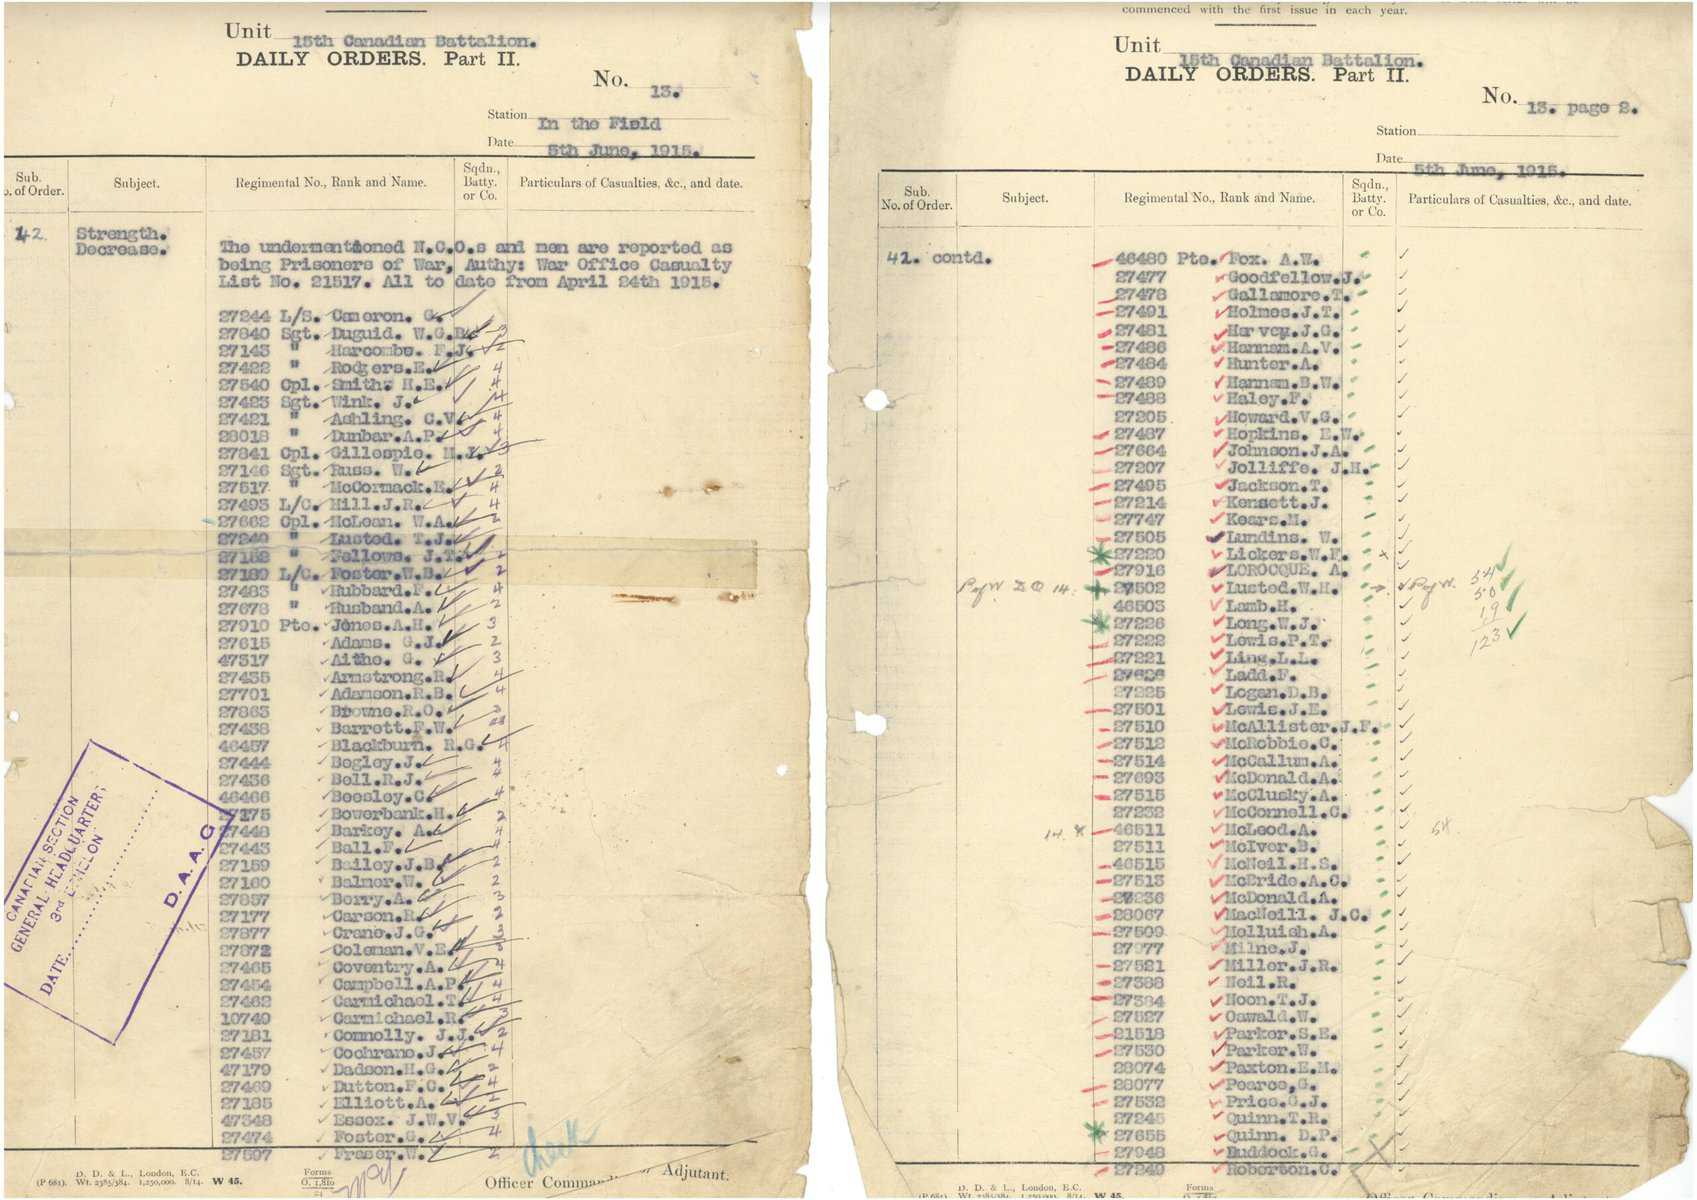 Unit 15th Canadian Battalion.
DAILY ORDERS. Part II.
No. 13.
Station In the Field
Date 5th June, 1915.
Sub. No. of Order.
Subject.
Regimental No., Rank and Name.
Sqdn., Batty. or Co.
Particulars of Casualties, &c., and date.
42. Strength.
Decrease.
The undermentioned N.C.O.s and men are reported as
being Prisoners of War, Authy: War Office Casualty
List No. 21517. All to date from April 24th 1915.
27244 L/S. Cameron. G.
27840 Sgt. Duguid. W.G.B. 3
27143 " Harcombe. F.J. 2
27422 " Rodgers.E. 4
27540 Cpl. Smith. H.E. 4
27423 Sgt. Wink. J. 4
27421 " Ashling. C.V. 4
28018 " Dunbar.A.P. 4
27841 Cpl. Gillespie. M.J. 3
27146 Sgt. Russ. W. 2
27517 " McCormack.E. 4
27493 L/C. Hill.J.R. 4
27662 Cpl. McLean. W.A. 2
27249 " Lusted. T.J.
27152 " Fellows. J.T. 2
27189 L/C. Foster.W.B. 2
27483 " Hubbard.F. 4
27678 " Husband.A. 2
27910 Pte. Jones.A.H. 3
27615 Adams. G.J. 2
47317 Aithe. G. 3
27435 Armstrong.R. 4
27701 Adamson.R.B. 4
27863 Browne.R.O. 3
27438 Barrett.F.W.
46457 Blackburn. R.G. 4
27444 Begley.J. 4
27436 Bell.R.J. 4
46466 Beesley.C. 4
27175 Bowerbank.H. 2
27448 Barkey. A. 4
27443 Ball.F. 4
27159 Bailey.J.B. 2
27160 Balmer.W. 2
27857 Berry.A. 3
27177 Carson.R. 2
27877 Crane.J.G. 3
27872 Coleman.V.E.
27465 Coventry.A. 4
27454 Campbell.A.P. 4
27462 Carmichael.T. 4
10749 Carmichael.R. 3
27181 Connolly. J.J. 2
27457 Cochrane.J. 4
47179 Dadson.H.G. 2
27469 Dutton.F.C. 4
27185 Elliott.A. 2
47348 Essex. J.W.V. 3
27474 Foster.G. 4
27597 Fraser.W. 2
CANADIAN SECTION
GENERAL HEADQUARTERS
3rd ECHELON
DATE
D. A. A. G
check
D. D. & L., London, E.C.
(P 681). Wt. 2585/384. 1,250,000. 8/14. W 45.
Forms
O. 1,810
Officer Comman
Adjutant.
commenced with the first issue in each year.
Unit 15th Canadian Battalion.
DAILY ORDERS. Part II.
No. 13. page 2.
Station
Date 5th June, 1915.
Sub. No. of Order.
Subject.
Regimental No., Rank and Name.
Sqdn., Batty. or Co.
Particulars of Casualties, &c., and date.
42. contd.
46480 Pte. Fox. A.W.
27477 Goodfellow.J.
27478 Gallamore.T.
27491 Holmes.J.T.
27481 Harvey.J.G.
27486 Hannam.A.V.
27484 Hunter.A.
27489 Hannam.B.W.
27488 Haley.F.
27205 Howard.V.G.
27487 Hopkins. E.W.
27664 Johnson.J.A.
27207 Jolliffe. J.H.
27495 Jackson.T.
27214 Kensett.J.
27747 Kears.M.
27505 Lundins. W.
27220 Lickers.W.F. x
27916 LOROCQUE. A. 54
27502 Lusted.W.H. 50
46503 Lamb.H. 19
27226 Long.W.J. 123
27222 Lewis.P.T.
27221 Ling.L.L.
27626 Ladd.F.
27225 Logan.D.B.
27501 Lewis.J.E.
27510 McAllister.J.F.
27512 McRobbie.C.
27514 McCallum.A.
27693 McDonald.A.
27515 McClusky.A.
27232 McConnell.C.
14. X 46511 McLeod.A. 54
27511 McIver.B.
46515 McNeil.H.S.
27513 McBride.A.C.
27236 McDonald.A.
28067 MacNeill. J.C.
27509 Melluish.A.
27977 Milne.J.
27521 Miller.J.R.
27388 Neil.R.
27384 Noon.T.J.
27527 Oswald.W.
21518 Parker.S.E.
27530 Parker.W.
28074 Paxton.E.M.
28077 Pearce,G.
27532 Price.G.J.
27245 Quinn.T.R.
27655 Quinn. D.P.
27948 Ruddock.G.
27249 Roberton.C.
D. D. & L., London, E.C.
(P 681). Wt. 2585/384. 1,250,000. 8/14. W 45.
Forms